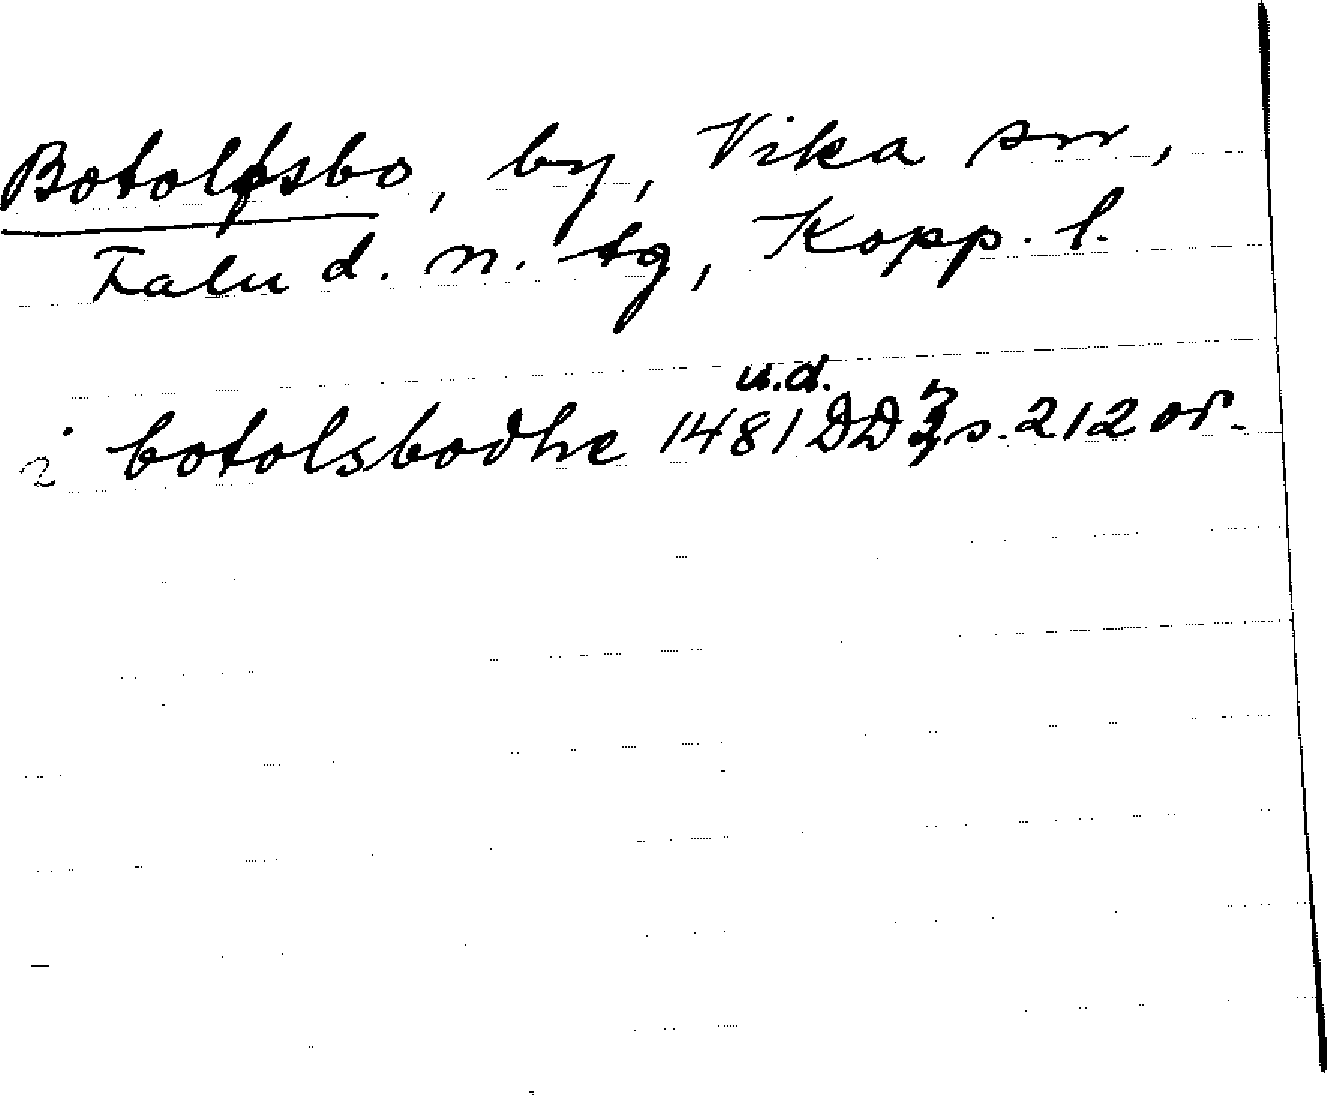 Botolfsbo, by, Vika sn,
Falu d. n. tg, Kopp. l.
u.d.
i botolsbodhe 1481 DD 3, s. 212 or.